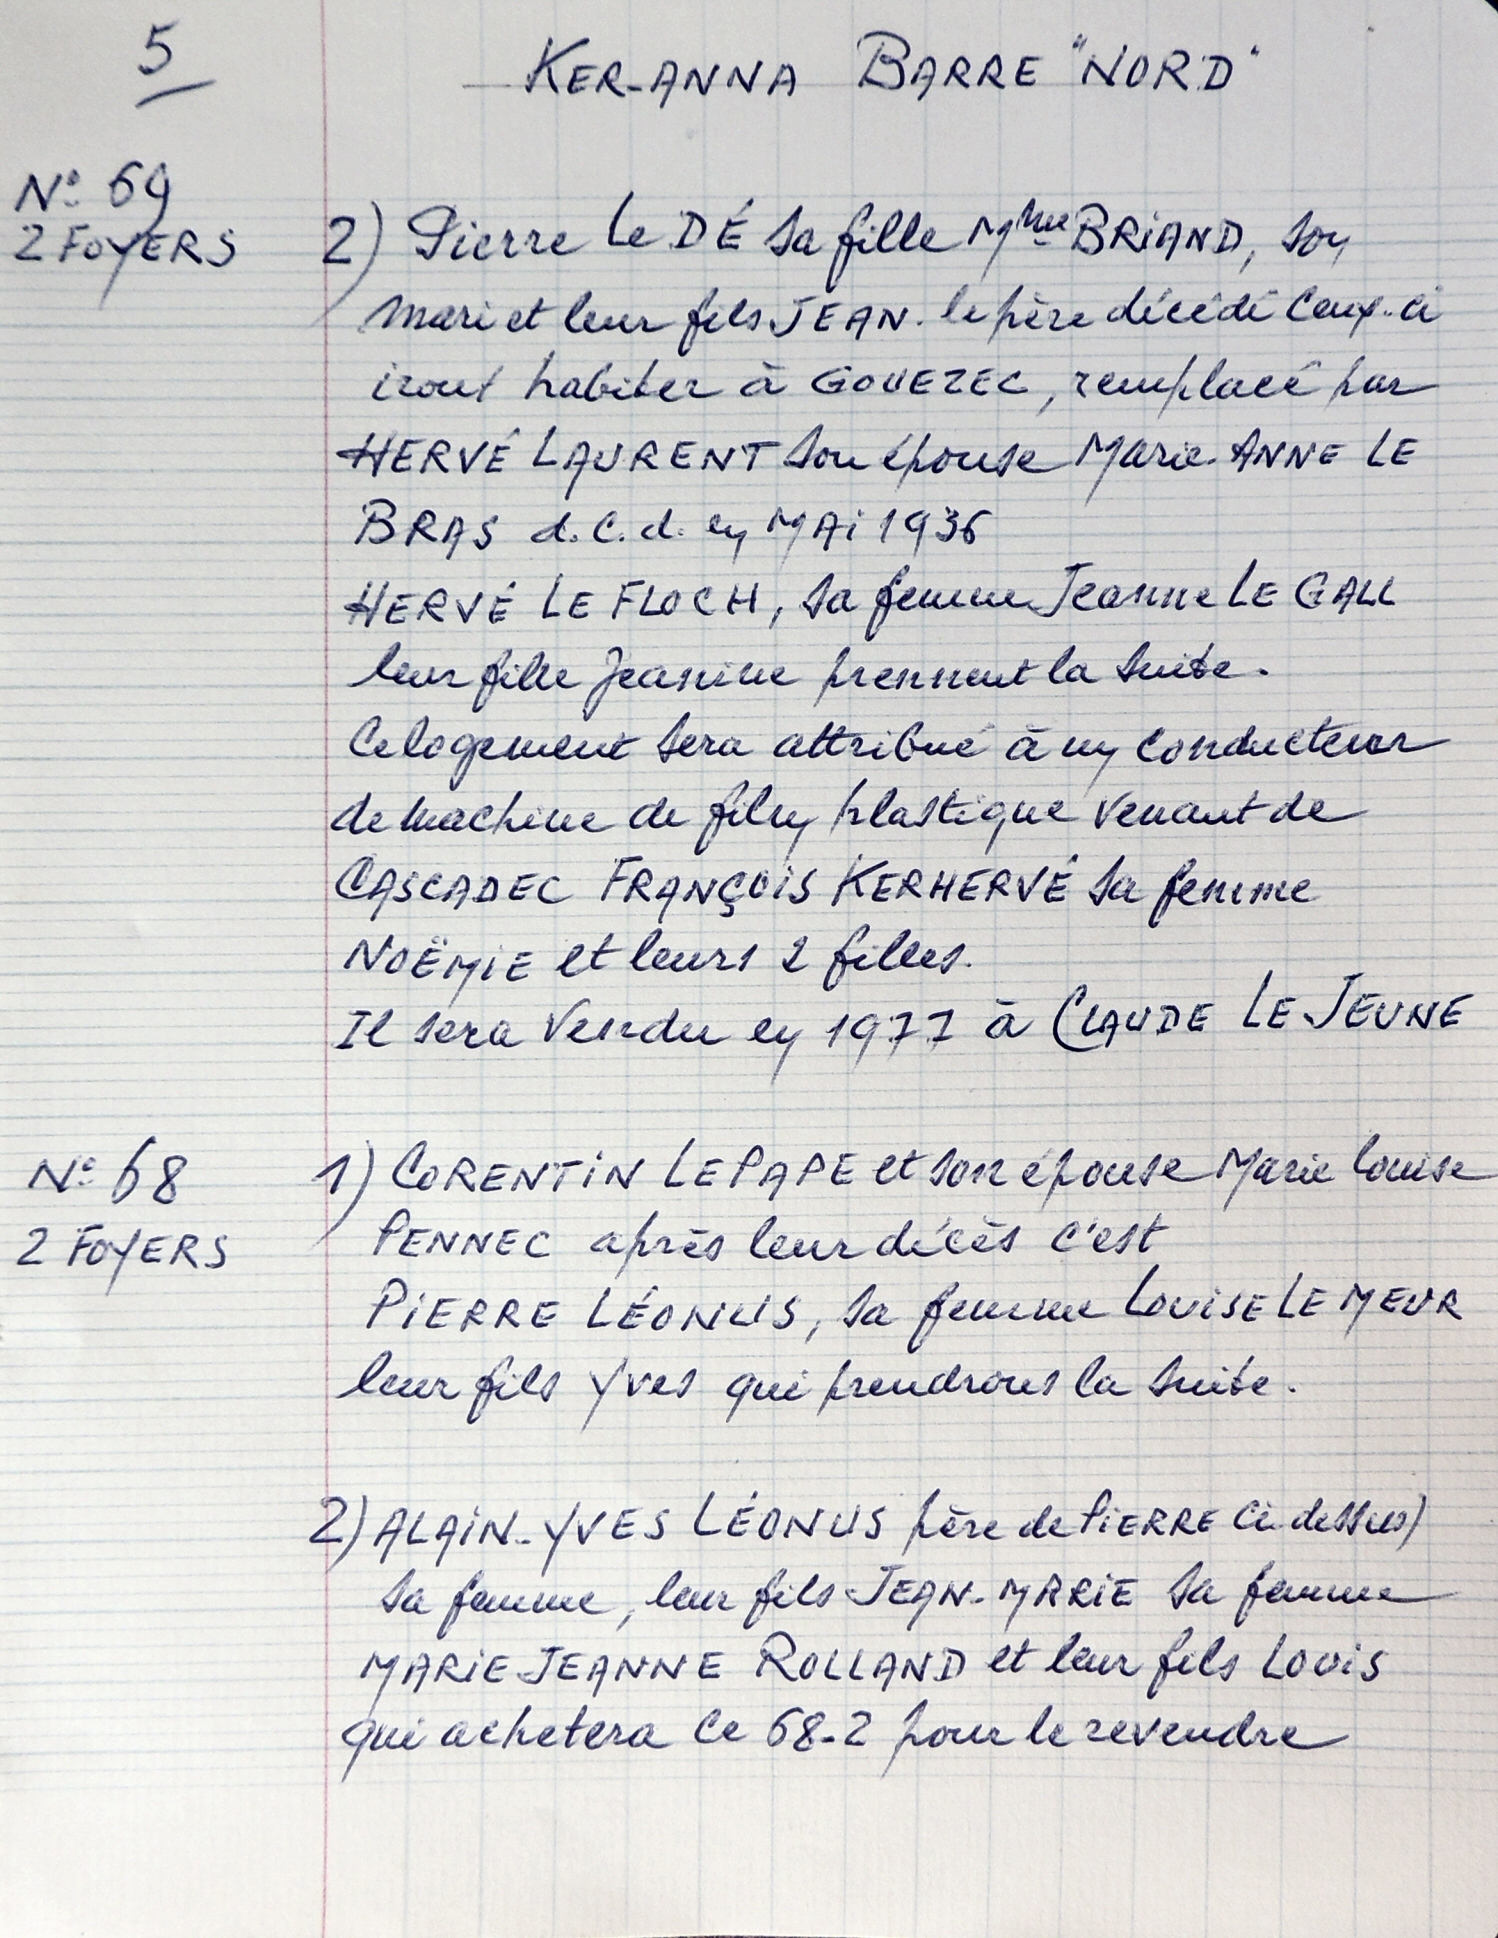 5
KER-ANNA BARRE "NORD"
N° 69
2 FOYERS
2) Pierre Le DÉ sa fille Mme BRIAND, son
mari et leur fils JEAN. le père décédé Ceux-ci
iront habiter à GOUEZEC, remplacé par
HERVÉ LAURENT son épouse Marie-ANNE LE
BRAS d.c.d. en MAI 1936
HERVÉ LE FLOCH, sa femme Jeanne LE GALL
leur fille Jeanine prennent la suite.
Ce logement sera attribué à un conducteur
de machine de film plastique venant de
CASCADEC FRANÇOIS KERHERVÉ sa femme
NOËMIE et leurs 2 filles.
Il sera vendu en 1977 à CLAUDE LE JEUNE
N° 68
2 FOYERS
1) CORENTIN LE PAPE et son épouse Marie Louise
PENNEC après leur décès c'est
PIERRE LÉONUS, sa femme LOUISE LE MEUR
leur fils Yves qui prendrons la suite.
2) ALAIN-YVES LÉONUS père de PIERRE ci-dessus)
sa femme, leur fils JEAN-MARIE sa femme
MARIE JEANNE ROLLAND et leur fils LOUIS
qui achetera ce 68-2 pour le revendre